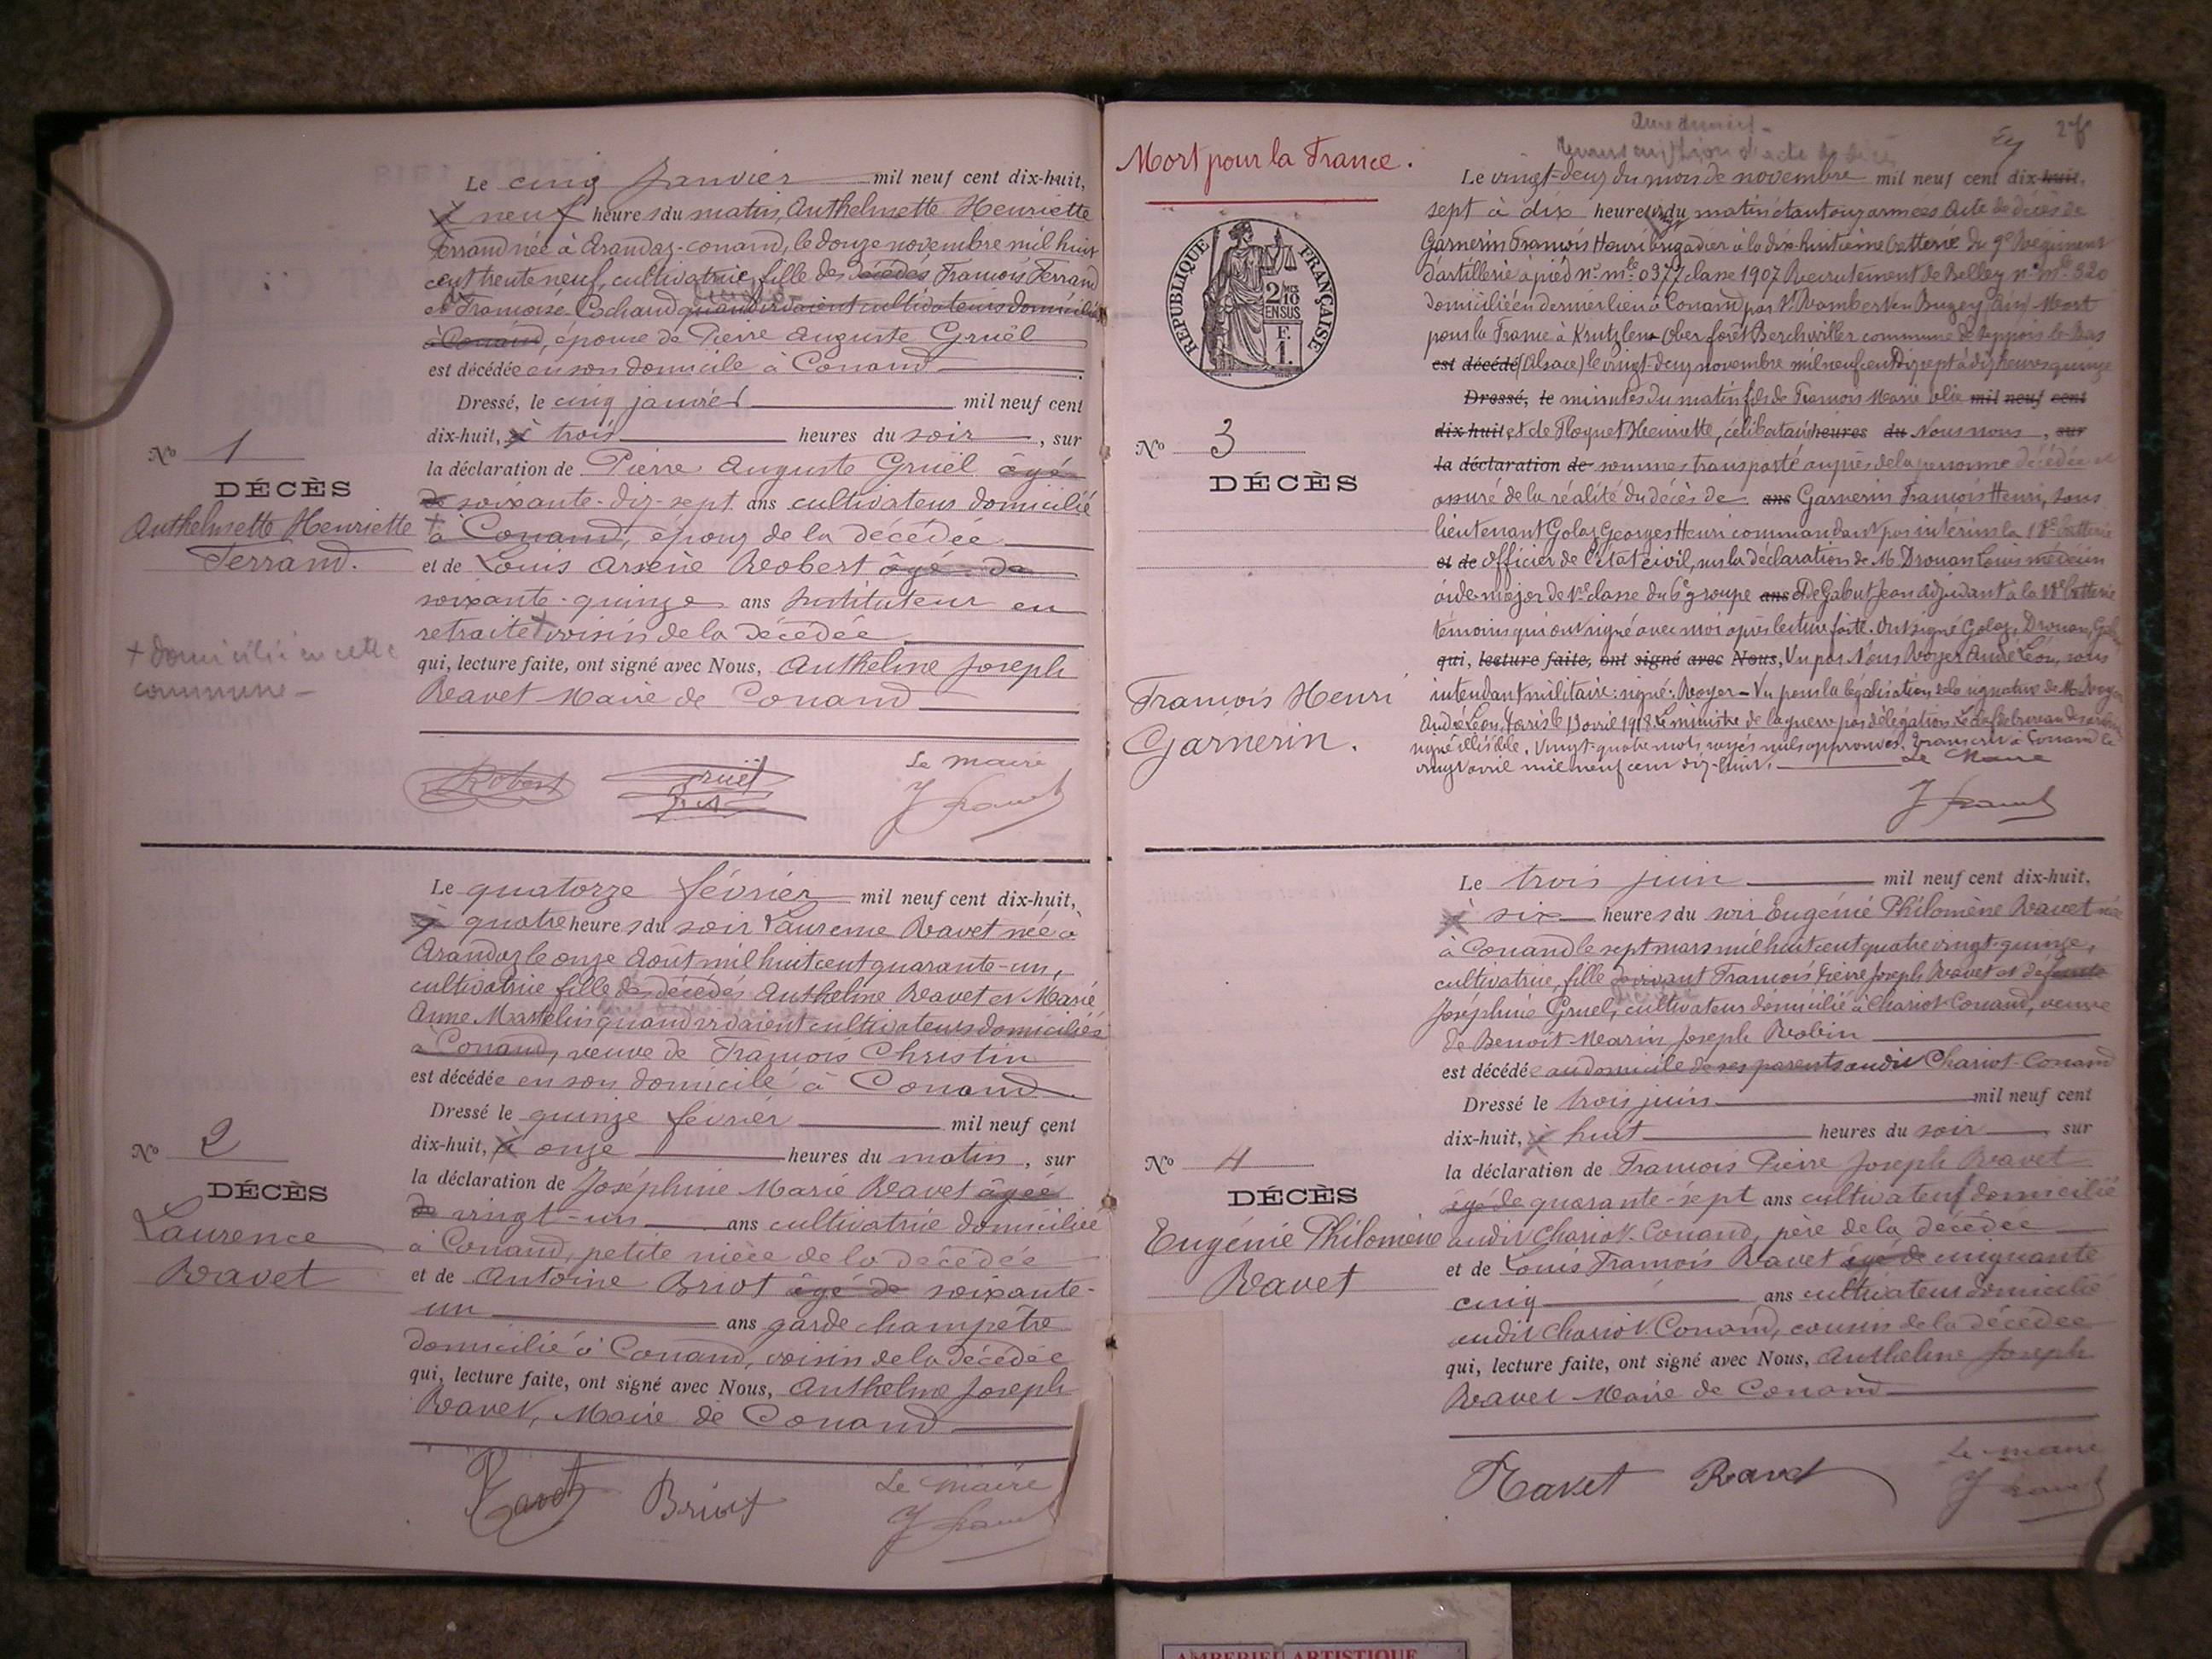 Le cinq Janvier mil neuf cent dix-huit,
à neuf heures du matin, Anthelmette Henriette
Ferrand née à Arandas-conand, le douze novembre mil huit
cent trente neuf, cultivatrice, fille des décédés François Ferrand
et Françoise Cochaud quand vivaient cultivateurs domiciliés
à Conand, épouse de Pierre Auguste Gruël
est décédée en son domicile à Conand
Dressé, le cinq janvier mil neuf cent
dix-huit, à trois heures du soir, sur
la déclaration de Pierre Auguste Gruël âgé
de soixante-dix-sept ans cultivateur domicilié
à Conand, époux de la décédée
et de Louis Arsène Robert âgé de
soixante-quinze ans Instituteur en
retraite + voisin de la décédée
qui, lecture faite, ont signé avec Nous, Anthelme Joseph
Ravet Maire de Conand
Robert Gruël Le maire
J Ravet
No 1
DÉCÈS
Anthelmette Henriette
Ferrand.
+ domicilié en cette
commune -
Le quatorze février mil neuf cent dix-huit,
à quatre heures du soir Laurence Ravet née à
Arandas le onze Août mil huit cent quarante-un,
cultivatrice fille des décédés Anthelme Ravet et Marie
Anne Martelin quand vivaient cultivateurs domiciliés
à Conand, veuve de François Christin
est décédée en son domicile à Conand
Dressé le quinze février mil neuf cent
dix-huit, à onze heures du matin, sur
la déclaration de Joséphine Marie Ravet âgée
de vingt-un ans cultivatrice domiciliée
à Conand, petite nièce de la décédée
et de Antoine Briot âgé de soixante-
un ans garde champêtre
domicilié à Conand, voisin de la décédée
qui, lecture faite, ont signé avec Nous, Anthelme Joseph
Ravet, Maire de Conand
Ravet Briot Le maire
J Ravet
No 2
DÉCÈS
Laurence
Ravet
Mort pour la France.
RÉPUBLIQUE FRANÇAISE
2/10 EN SUS
F. 1.
No 3
DÉCÈS
François Henri
Garnerin.
transcription d'acte de décès
Le vingt-deux du mois de novembre mil neuf cent dix-huit.
sept à dix heures du matin étant aux armées Acte de décès de
Garnerin François Henri brigadier à la dix-huitième batterie du 9e Régiment
d'artillerie à pied no mle 0377 classe 1907 Recrutement de Belley no mle 320
domicilié en dernier lieu à Conand par St Rambert en Bugey Ain Mort
pour la France à Krutzlen Ober forêt Berchwiller commune de Seppois-le-Bas
est décédé (Alsace) le vingt-deux novembre mil neuf cent dix sept à dix heures quinze
Dressé, le minutes du matin fils de François Marie Elie mil neuf cent
dix-huit et de Ploynet Henriette, célibataire heures du Nous nous, sur
la déclaration de sommes transporté auprès de la personne décédée et
assuré de la réalité du décès de ans Garnerin François Henri, Sous
lieutenant Golaz Georges Henri commandant par intérim la 18e batterie
et de officier de l'état civil, sur la déclaration de M. Drouan Louis médecin
aide-major de 1re classe du 6e groupe ans et de Gabut Jean adjudant à la 18e batterie
témoins qui ont signé avec moi après lecture faite. Ont signé Golaz, Drouan,
qui, lecture faite, ont signé avec Nous, Vu par Nous Royer André Léon, sous
intendant militaire: signé: Royer - Vu pour la légalisation de la signature de M. Royer
André Léon, Paris le 13 avril 1918. Le ministre de la guerre par délégation Le chef de bureau
signé illisible. Vingt-quatre mots rayés nuls approuvés. Transcrit à Conand le
vingt avril mil neuf cent dix-huit. Le Maire
J Ravet
Le trois juin mil neuf cent dix-huit.
à six heures du soir Eugénie Philomène Ravet née
à Conand le sept mars mil huit cent quatre vingt-quinze,
cultivatrice, fille de vivant François Pierre Joseph Ravet et défunte
Joséphine Gruel, cultivateur domicilié à Chariot-Conand, veuve
de Benoît-Marin Joseph Robin
est décédée au domicile de ses parents audit Chariot-Conand
Dressé le trois juin mil neuf cent
dix-huit, à huit heures du soir, sur
la déclaration de François Pierre Joseph Ravet
âgé de quarante-sept ans cultivateur domicilié
audit Chariot-Conand, père de la décédée
et de Louis François Ravet âgé de cinquante
cinq ans cultivateur domicilié
audit Chariot Conand, cousin de la décédée
qui, lecture faite, ont signé avec Nous, Anthelme Joseph
Ravet Maire de Conand
Ravet Ravet Le maire
J Ravet
No 4
DÉCÈS
Eugénie Philomène
Ravet
AMBERIEU ARTISTIQUE